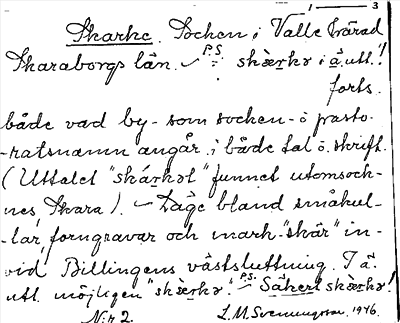 1 — 3
Skarke. Socken i Valle härad
Skaraborgs län. P.S. skærkə i ä. utt.!
forts.
både vad by- som socken- o pasto-
-ratsnamn angår i både tal o. skrift.
(Uttalet "skárkət" funnet utomsock-
nes, Skara). Läge bland småkul-
-lar, forngravar och mark-"skär" in-
vid Billingens västsluttning. I ä.
utt. möjligen "skærkə". P.S. Säkert skærkə!
N:r 2. L. M. Svenungsson, 1946.